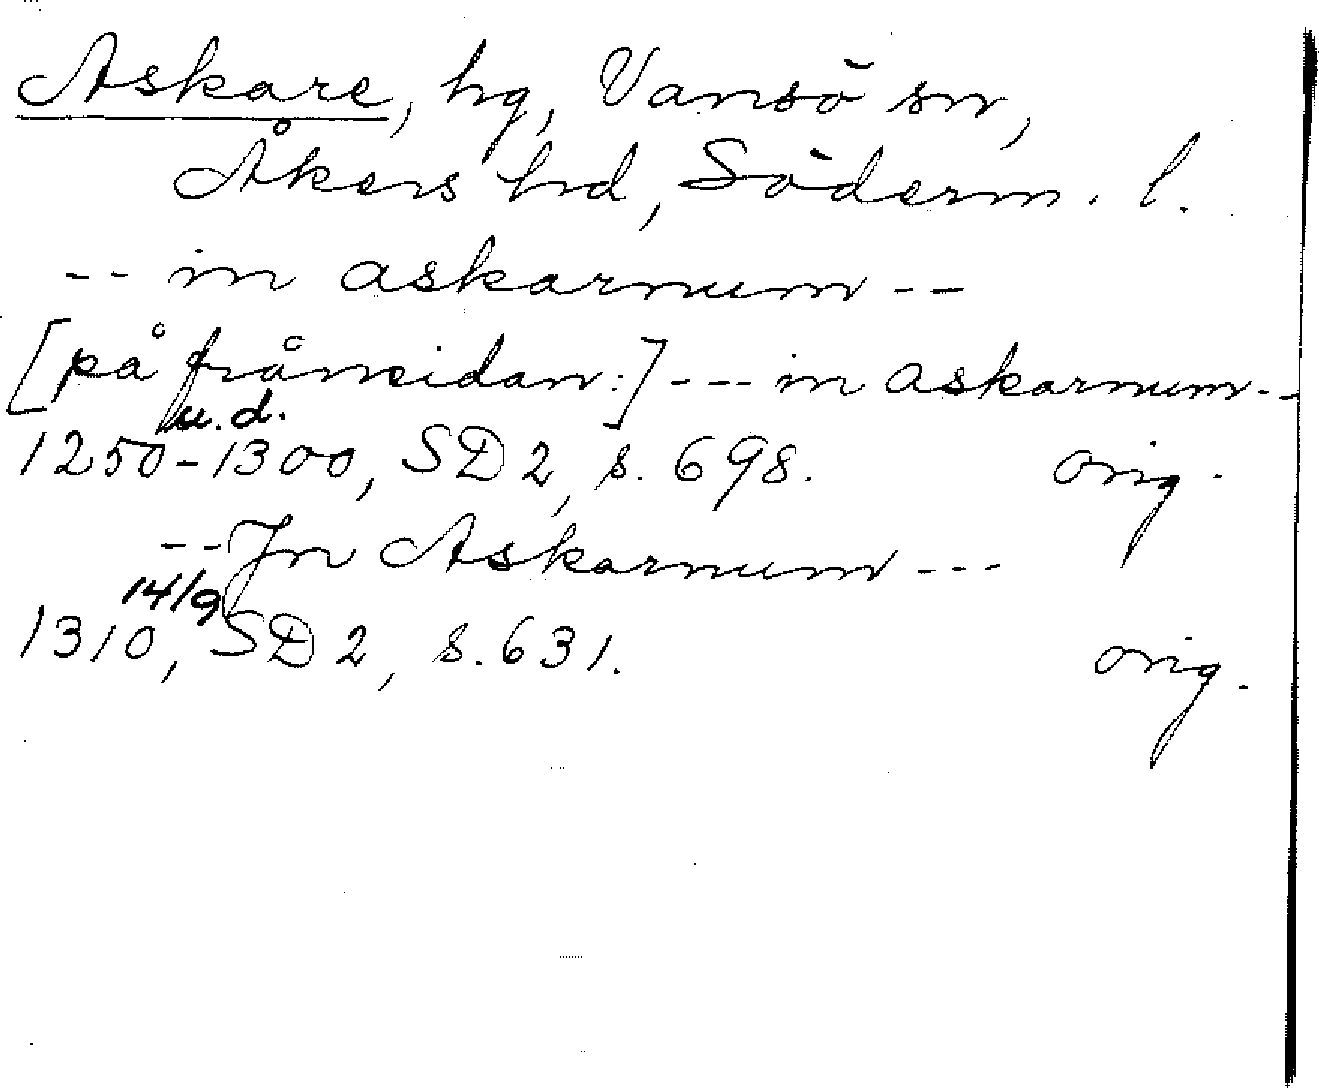 Askare, hg, Vansö sn,
Åkers hd, Söderm. l.
-- in askarnum --
[på frånsidan:] --- in askarnum --
u.d.
1250-1300, SD 2, s. 698. orig.
-- Jn Askarnum ---
14/9
1310, SD 2, s. 631. orig.